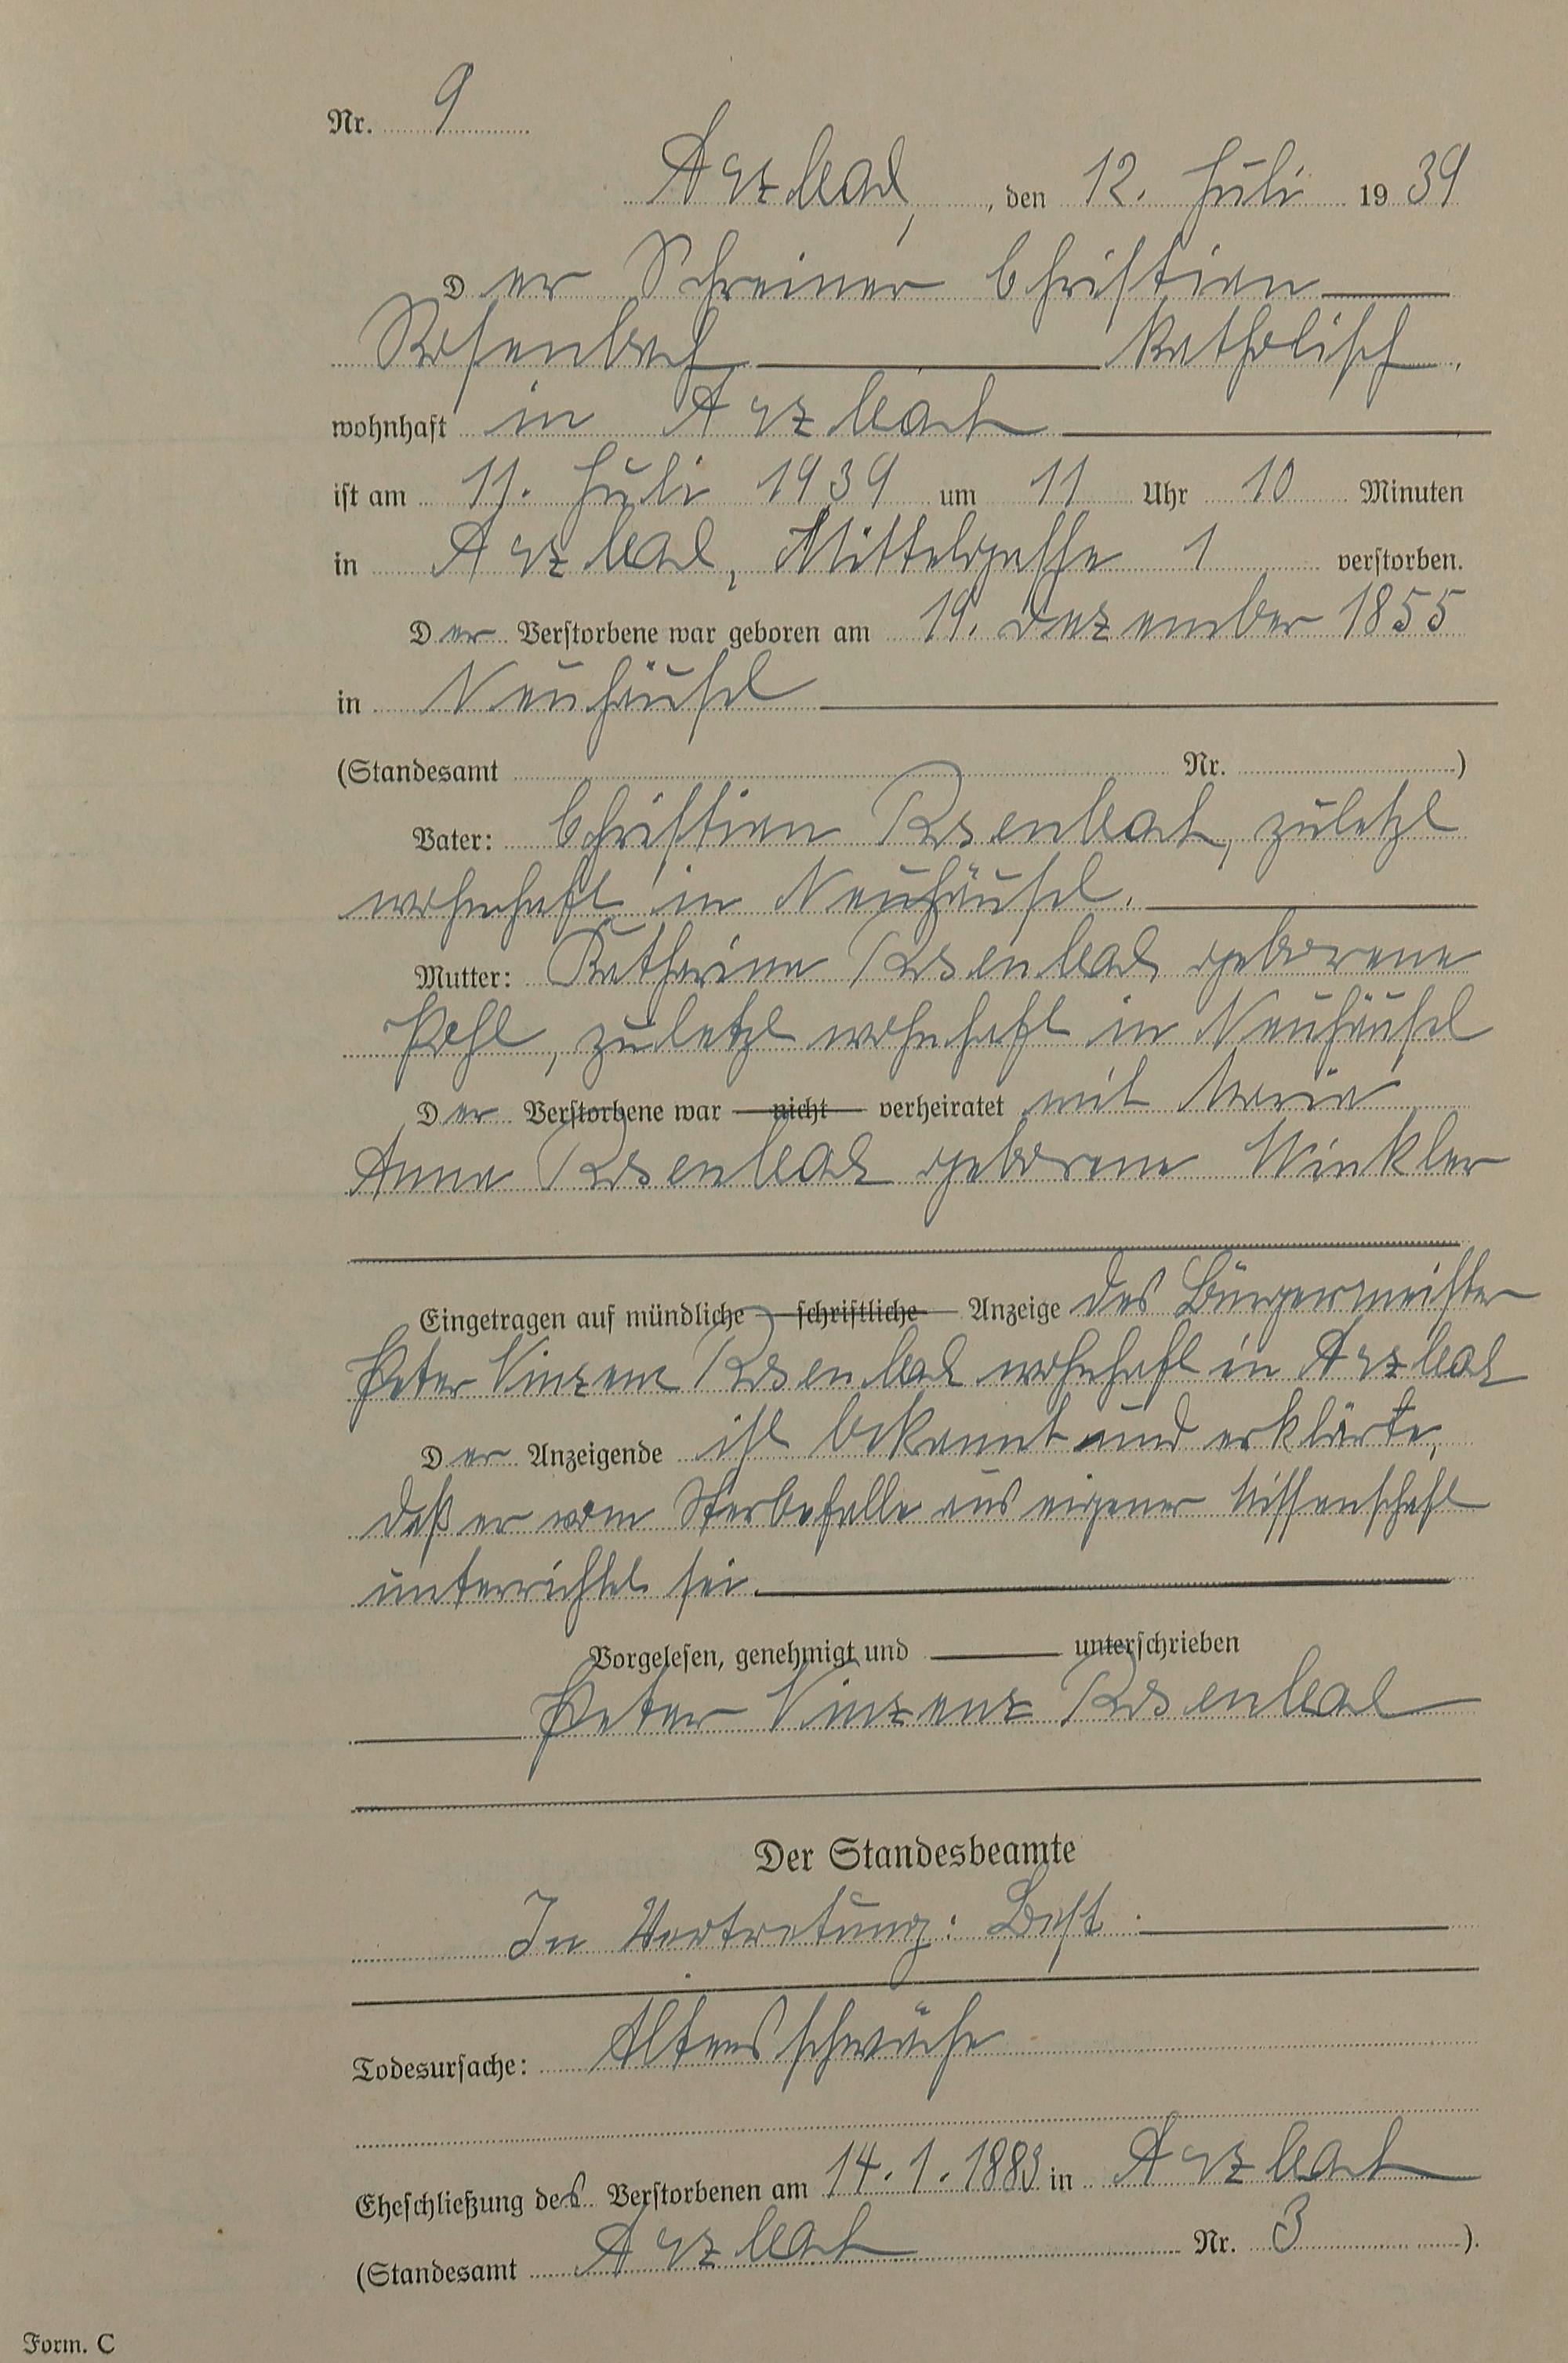 Nr. 9
Arzbach, den 12. Juli 1939
Der Schreiner Christian
Rosenbach katholisch,
wohnhaft in Arzbach
ist am 11. Juli 1939 um 11 Uhr 10 Minuten
in Arzbach, Mittelgasse 1 verstorben.
Der Verstorbene war geboren am 19. Dezember 1855
in Neuhäusel
(Standesamt Nr. )
Vater: Christian Rosenbach, zuletzt
wohnhaft in Neuhäusel.
Mutter: Katharina Rosenbach geborene
Pohl, zuletzt wohnhaft in Neuhäusel
Der Verstorbene war nicht verheiratet mit Maria
Anna Rosenbach geborene Winkler
Eingetragen auf mündliche schriftliche Anzeige des Bürgermeister
Peter Vinzenz Rosenbach wohnhaft in Arzbach
Der Anzeigende ist bekannt und erklärte,
daß er vom Sterbefalle aus eigener Wissenschaft
unterrichtet sei.
Vorgelesen, genehmigt und unterschrieben
Peter Vinzenz Rosenbach
Der Standesbeamte
In Vertretung: Best.
Todesursache: Altersschwäche
Eheschließung des Verstorbenen am 14.1.1883 in Arzbach
(Standesamt Arzbach Nr. 3 ).
Form. C